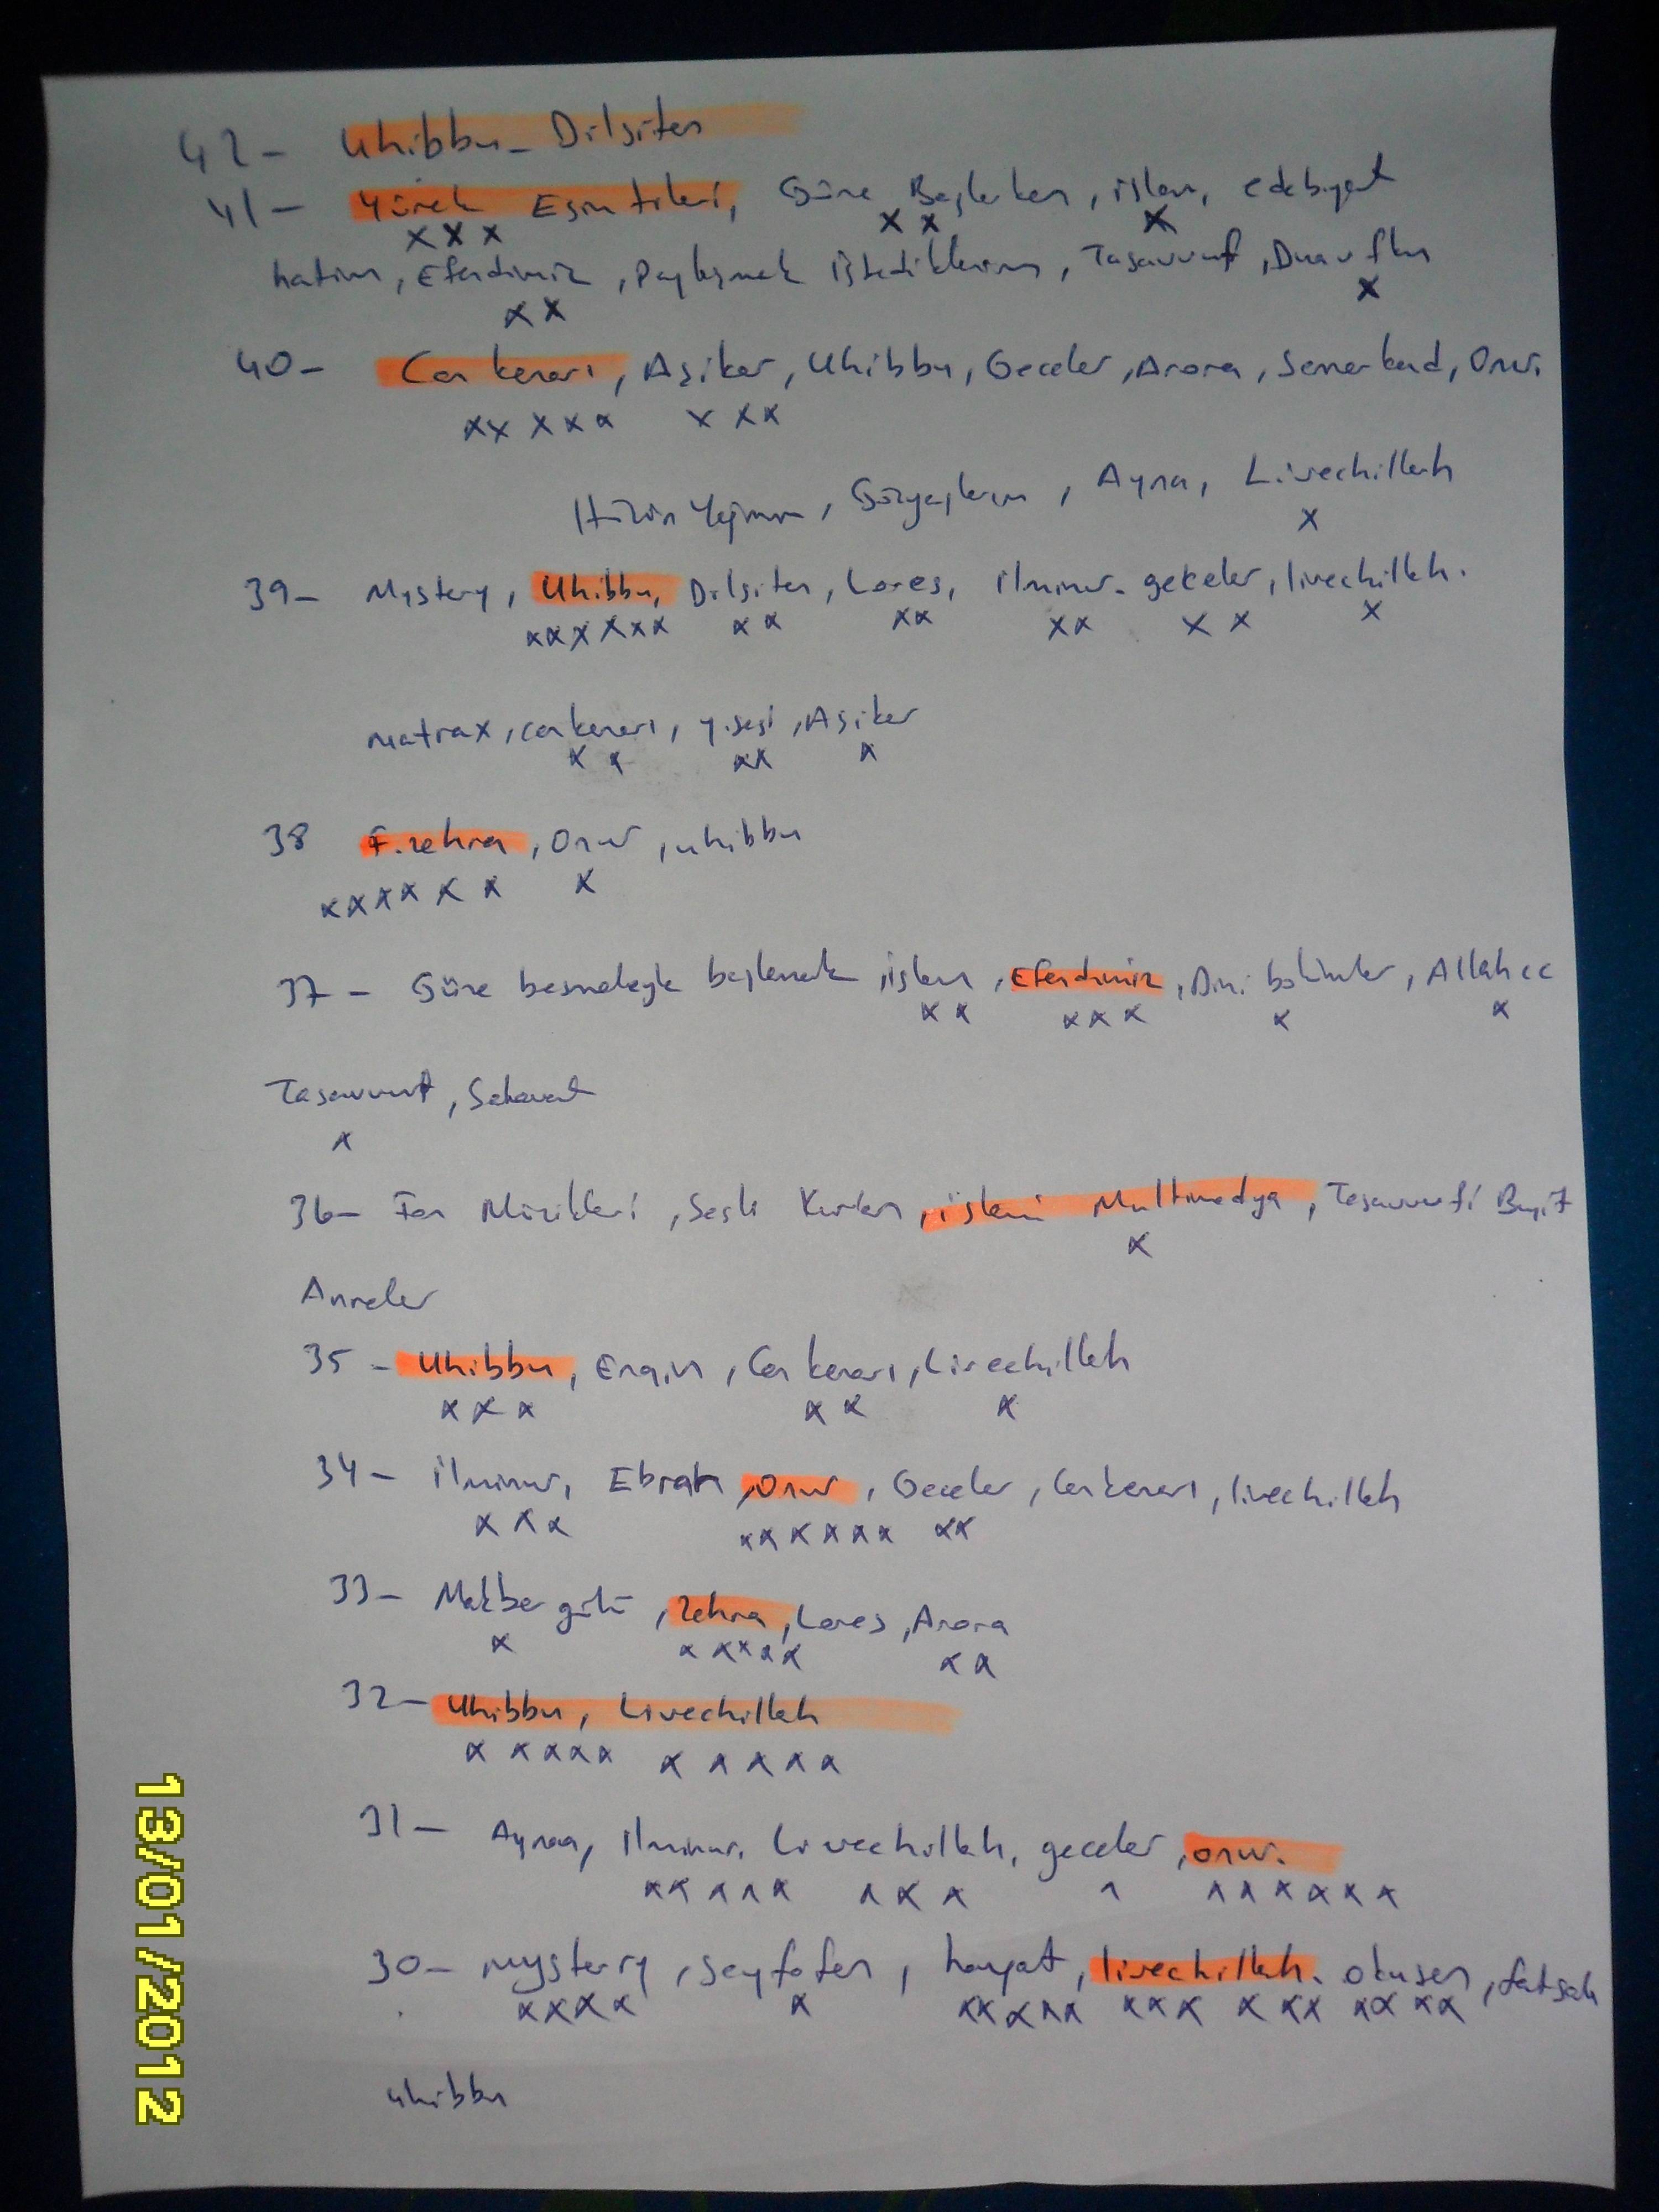 42- Uhibbu - Dilsiten
41- Yürek Esintileri, Güne Başlarken, islam, edebiyat
xxx xx x
hatim, Efendimiz, Paylaşmak istediklerim, Tasavvuf, Dua uflkn
xx x
40- Can kenarı, Aşikar, Uhibbu, Geceler, Arora, Semerkand, Onur.
xxxxx xxx
Hüzün Yağmuru, Gözyaşlarım, Ayna, Livechillah
x
39- Mystery, Uhibbu, Dilsiten, Lares, ilminur. geceler, livechillah.
xxxxxx xx xx xx xx x
matrax, can kenarı, y.sesi, Aşikar
xx xx x
38 F.zehra, Onur, uhibbu
xxxxxx x
37- Güne besmeleyle başlamak, islam, Efendimiz, Dini bölümler, Allah cc
xx xxx x x
Tasavvuf, Sahavet
x
36- Fon Müzikleri, Sesli Kuran, islami Multimedya, Tasavvufi Beyit
x
Anneler
35- Uhibbu, Engin, Can kenarı, Livechillah
xxx xx x
34- ilminur, Ebrah, Onur, Geceler, Can kenarı, livechillah
xxx xxxxxx xx
33- Makber gülü, Zehra, Lares, Arora
x xxxxx xx
32- Uhibbu, Livechillah
xxxxx xxxxx
31- Aynaa, ilminur. Livechillah, geceler, onur.
xxxxx xxx x xxxxxx
30- mystery, seyfofen, hayat, livechillah. okusen, fatsah
xxxx x xxxxx xxxxxx xxxx
uhibbu
13/01/2012